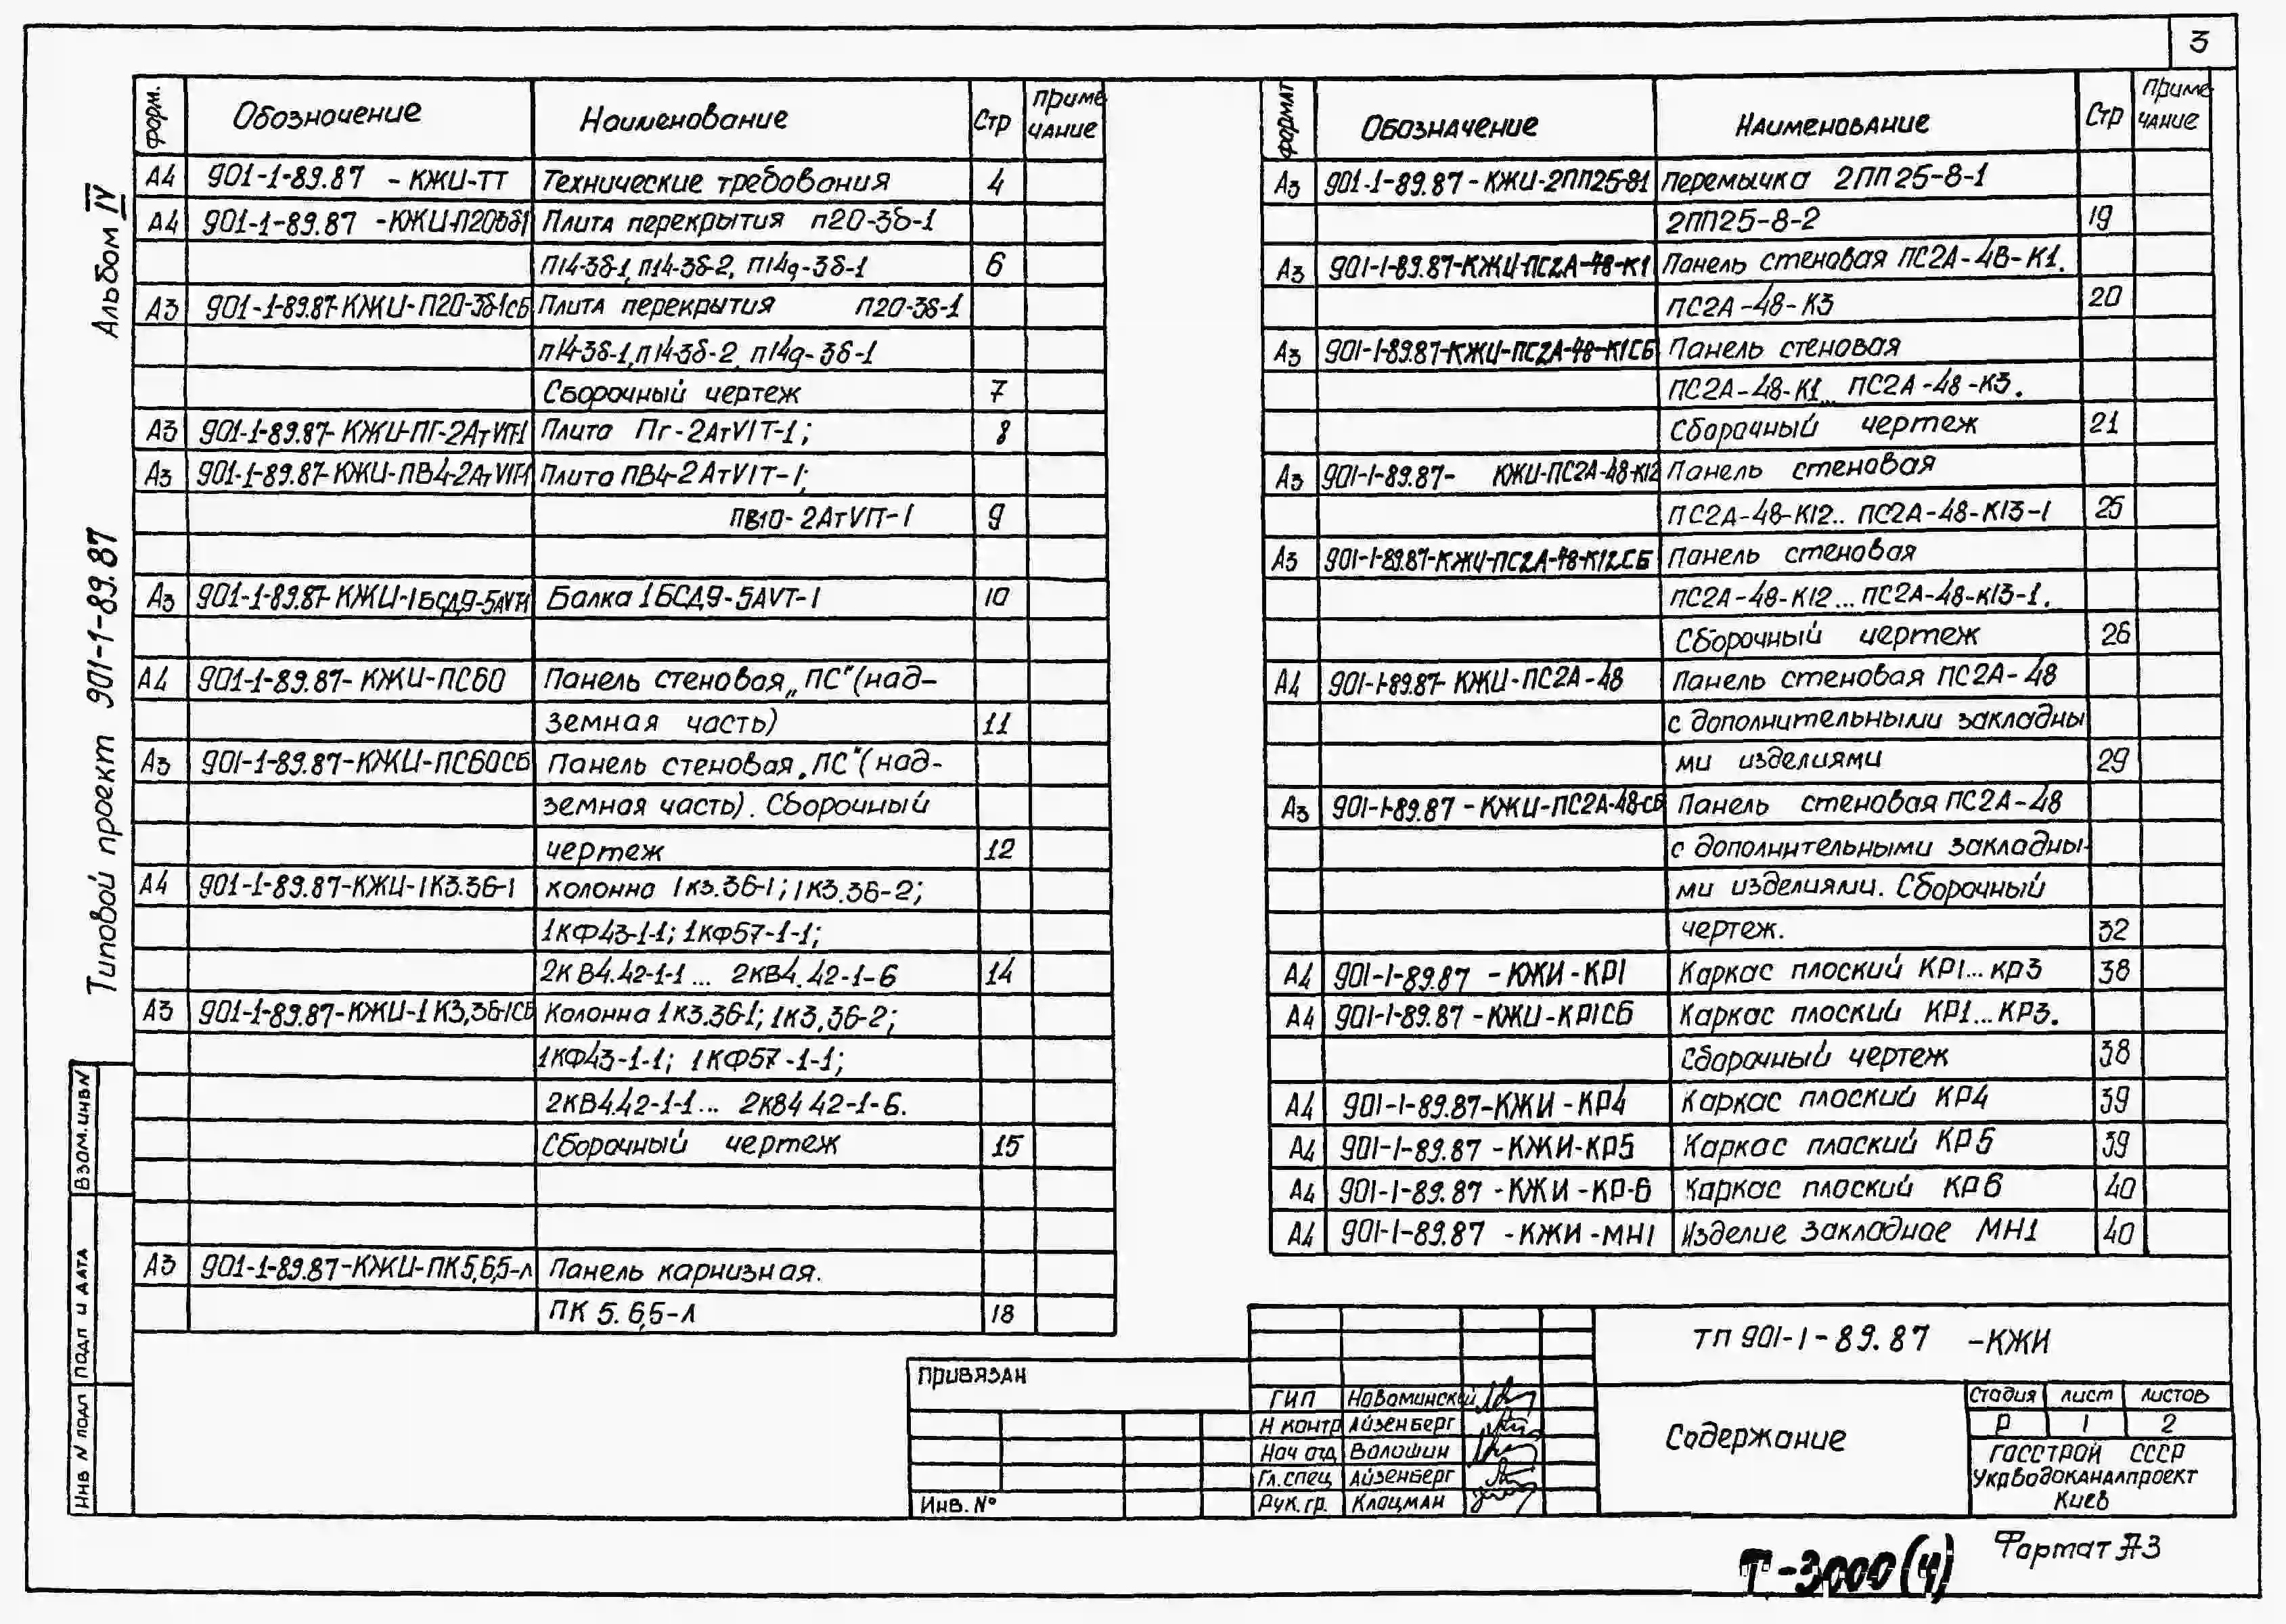 3
Альбом IV
Типовой проект 901-1-89.87
Взам.инв N
Подп и дата
Инв N подл
форм. Обозначение Наименование Стр Примечание
А4 901-1-89.87 -КЖИ-ТТ Технические требования 4
А4 901-1-89.87 -КЖИ-П20-3δ-1 Плита перекрытия п20-3δ-1
П14-3δ-1, п14-3δ-2, п14д-3δ-1 6
А3 901-1-89.87-КЖИ-П20-3δ-1СБ Плита перекрытия П20-3δ-1
п14-3δ-1, п14-3δ-2, п14д-3δ-1
Сборочный чертеж 7
А3 901-1-89.87-КЖИ-ПГ-2АтVIТ-1 Плита Пг-2АтVIТ-1; 8
А3 901-1-89.87-КЖИ-ПВ4-2АтVIТ-1 Плита ПВ4-2АтVIТ-1;
ПВ10-2АтVIТ-1 9
А3 901-1-89.87-КЖИ-1БСД9-5АVТ-1 Балка 1БСД9-5АVТ-1 10
А4 901-1-89.87-КЖИ-ПС60 Панель стеновая „ПС"(над-
земная часть) 11
А3 901-1-89.87-КЖИ-ПС60СБ Панель стеновая „ПС"(над-
земная часть). Сборочный
чертеж 12
А4 901-1-89.87-КЖИ-1К3.36-1 колонна 1к3.36-1; 1К3.36-2;
1КФ43-1-1; 1КФ57-1-1;
2КВ4.42-1-1... 2КВ4.42-1-6 14
А3 901-1-89.87-КЖИ-1К3,36-1СБ Колонна 1к3.36-1; 1к3,36-2;
1КФ43-1-1; 1КФ57-1-1;
2КВ4.42-1-1... 2КВ4 42-1-6.
Сборочный чертеж 15
А3 901-1-89.87-КЖИ-ПК5,6,5-Л Панель карнизная.
ПК 5. 6,5-Л 18
формат Обозначение Наименование Стр Примечание
А3 901-1-89.87-КЖИ-2ПП25-8-1 перемычка 2ПП25-8-1
2ПП25-8-2 19
А3 901-1-89.87-КЖИ-ПС2А-48-К1 Панель стеновая ПС2А-48-К1.
ПС2А-48-К3 20
А3 901-1-89.87-КЖИ-ПС2А-48-К1СБ Панель стеновая
ПС2А-48-К1... ПС2А-48-К3.
Сборочный чертеж 21
А3 901-1-89.87- КЖИ-ПС2А-48-К12 Панель стеновая
ПС2А-48-К12.. ПС2А-48-К13-1 25
А3 901-1-89.87-КЖИ-ПС2А-48-К12СБ Панель стеновая
ПС2А-48-К12... ПС2А-48-К13-1.
Сборочный чертеж 26
А4 901-1-89.87-КЖИ-ПС2А-48 Панель стеновая ПС2А-48
с дополнительными закладны
ми изделиями 29
А3 901-1-89.87-КЖИ-ПС2А-48-СБ Панель стеновая ПС2А-48
с дополнительными закладны-
ми изделиями. Сборочный
чертеж. 32
А4 901-1-89.87 -КЖИ-КР1 Каркас плоский КР1...КР3 38
А4 901-1-89.87 -КЖИ-КР1СБ Каркас плоский КР1...КР3.
Сборочный чертеж 38
А4 901-1-89.87-КЖИ-КР4 Каркас плоский КР4 39
А4 901-1-89.87 -КЖИ-КР5 Каркас плоский КР5 39
А4 901-1-89.87 -КЖИ-КР-6 Каркас плоский КР6 40
А4 901-1-89.87 -КЖИ-МН1 Изделие закладное МН1 40
Привязан
Инв. №
ГИП Новоминский
Н контр Айзенберг
Нач отд Волошин
Гл.спец Айзенберг
Рук.гр. Клоцман
ТП 901-1-89.87 -КЖИ
Содержание
Стадия лист листов
Р 1 2
Госстрой СССР
Укрводоканалпроект
Киев
Т-3000(4)
Формат А3